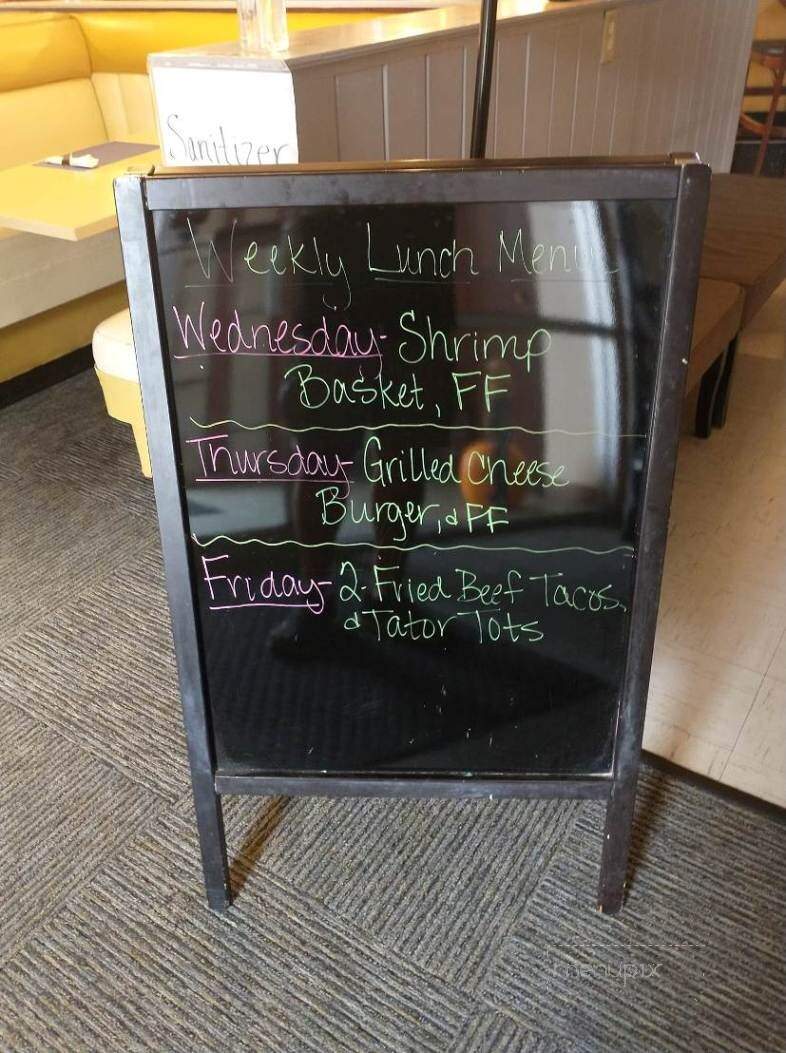 Sanitizer
Weekly Lunch Menu
Wednesday- Shrimp
Basket, FF
Thursday- Grilled Cheese
Burger, & FF
Friday- 2-Fried Beef Tacos
& Tator Tots
menupix